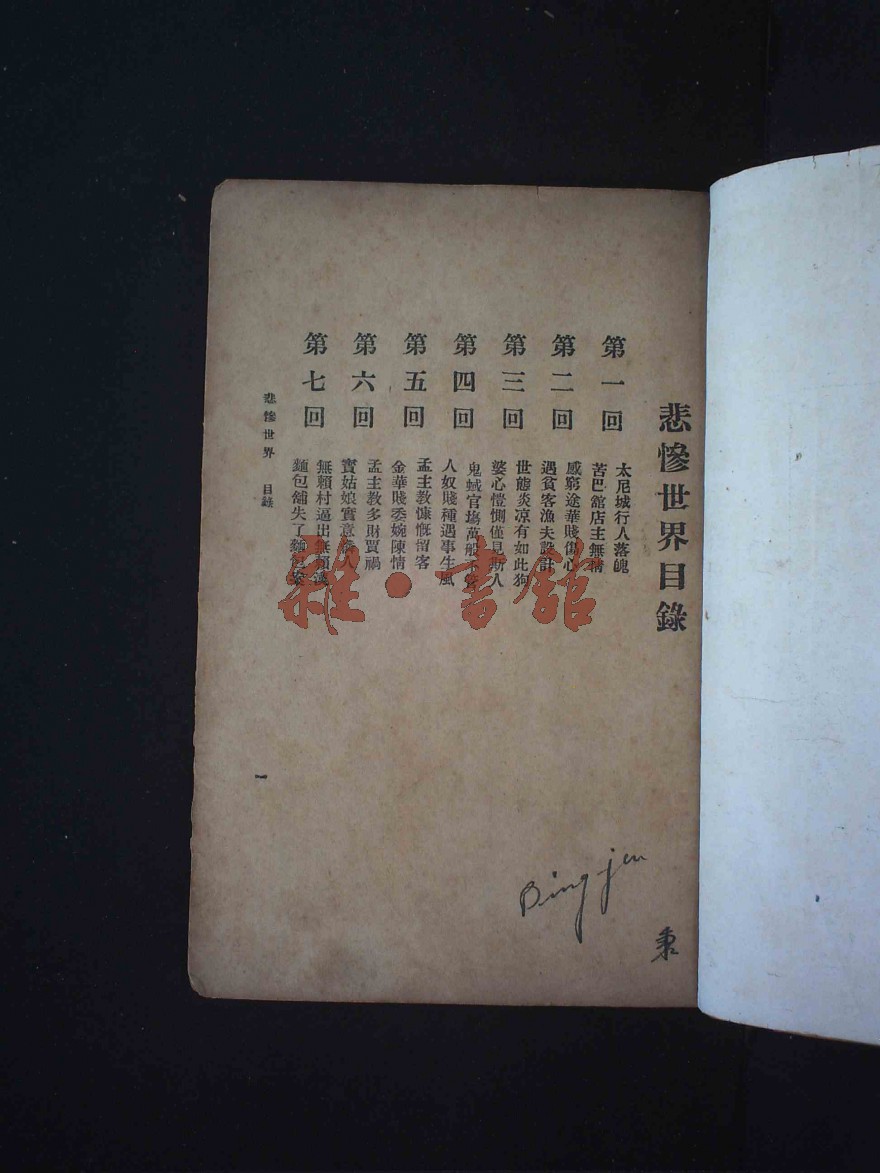 悲慘世界目錄
第一回
太尼城行人落魄
苦巴館店主無情
第二回
感窮途華賤傷心
遇貧客漁夫設計
第三回
世態炎涼有如此狗
婆心愷惻僅見斯人
第四回
鬼蜮官場萬般
人奴賤種遇事生風
第五回
孟主教慷慨留客
金華賤委婉陳情
第六回
孟主教多財賈禍
寶姑娘實意
第七回
無賴村逼出無賴漢
麵包舖失了麵包案
悲慘世界 目錄
一
Bing jen
秉
雜·書館